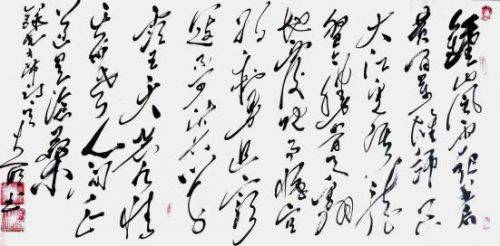 鍾山風雨起蒼
黃百萬雄師過
大江虎踞龍
盤今勝昔天翻
地覆慨而慷宜
將剩勇追窮
寇不可沽名學
霸王天若有情
天亦老人间正
道是滄桑